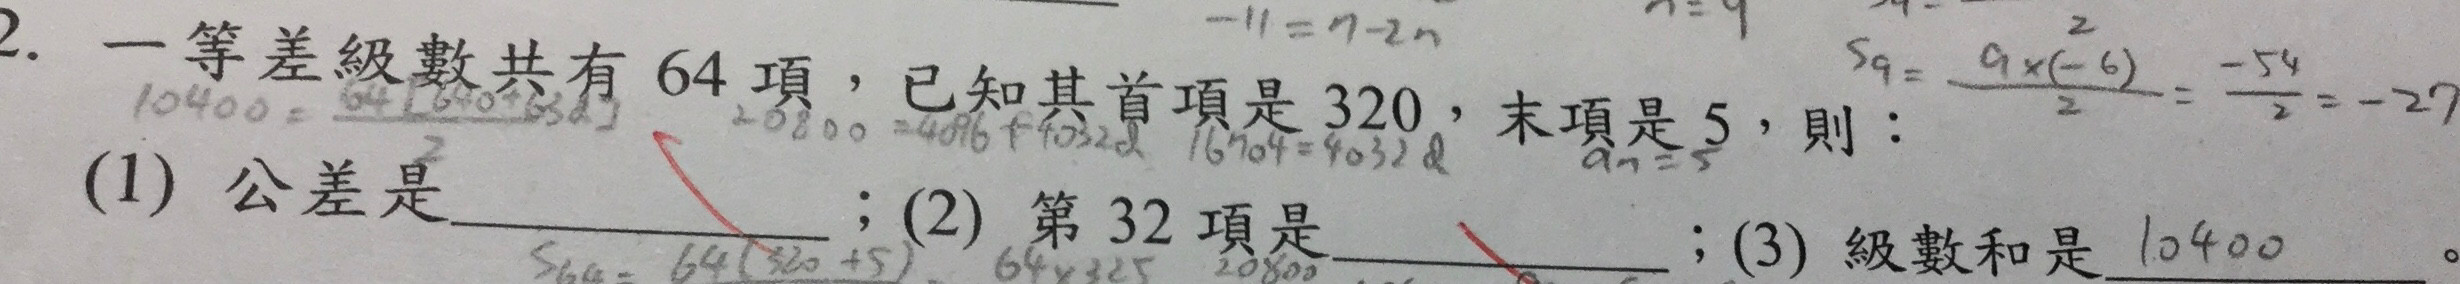 -11=n-2n
n=9
2
2. 一等差級數共有 64 項，已知其首項是 320，末項是 5，則：
S9= 9×(-6) / 2 = -54 / 2 = -27
10400= 64[640+63d] / 2 20800=4096+4032d 16704=4032d an=5
(1) 公差是 ；(2) 第 32 項是 ；(3) 級數和是 10400 。
S64= 64(320+5) 64×325 20800